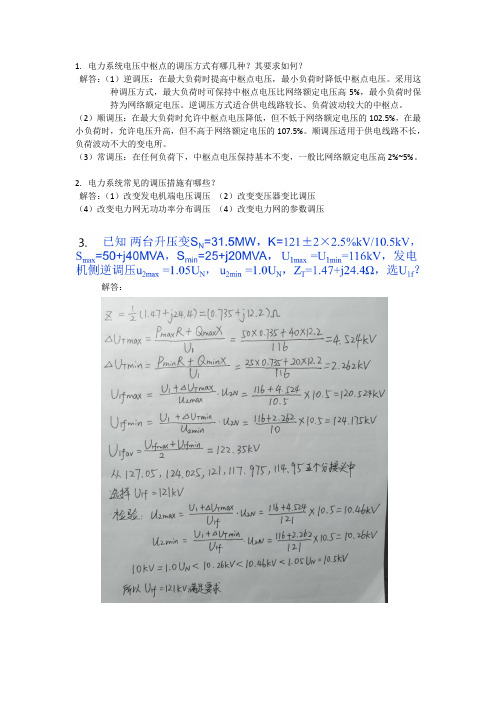 1. 电力系统电压中枢点的调压方式有哪几种？其要求如何？
解答：（1）逆调压：在最大负荷时提高中枢点电压，最小负荷时降低中枢点电压。采用这
种调压方式，最大负荷时可保持中枢点电压比网络额定电压高 5%，最小负荷时保
持为网络额定电压。逆调压方式适合供电线路较长、负荷波动较大的中枢点。
（2）顺调压：在最大负荷时允许中枢点电压降低，但不低于网络额定电压的 102.5%，在最
小负荷时，允许电压升高，但不高于网络额定电压的 107.5%。顺调压适用于供电线路不长，
负荷波动不大的变电所。
（3）常调压：在任何负荷下，中枢点电压保持基本不变，一般比网络额定电压高 2%~5%。
2. 电力系统常见的调压措施有哪些？
解答：（1）改变发电机端电压调压 （2）改变变压器变比调压
（4）改变电力网无功功率分布调压 （4）改变电力网的参数调压
3. 已知 两台升压变S_N=31.5MW，K=121±2×2.5%kV/10.5kV，
S_max=50+j40MVA，S_min=25+j20MVA，U_1max =U_1min=116kV，发电
机侧逆调压u_2max =1.05U_N， u_2min =1.0U_N，Z_T=1.47+j24.4Ω，选U_1f？
解答：
Z = 1/2 (1.47+j24.4)=(0.735+j12.2)Ω
ΔU_Tmax = (P_max R + Q_max X)/U_1 = (50×0.735+40×12.2)/116 =4.524kV
ΔU_Tmin = (P_min R + Q_min X)/U_1 = (25×0.735+20×12.2)/116 =2.262kV
U_1fmax = (U_1+ΔU_Tmax)/U_2max · U_2N = (116+4.524)/10.5 ×10.5=120.524kV
U_1fmin = (U_1+ΔU_Tmin)/U_2min · U_2N = (116+2.262)/10 ×10.5=124.175kV
U_1fav = (U_1fmax+U_1fmin)/2 = 122.35kV
从 127.05, 124.025, 121, 117.975, 114.95 五个分接头中
选择 U_1f =121kV
检验: U_2max = (U_1+ΔU_Tmax)/U_1f · U_2N = (116+4.524)/121 ×10.5=10.46kV
U_2min = (U_1+ΔU_Tmin)/U_1f · U_2N = (116+2.262)/121 ×10.5=10.26kV
10kV=1.0U_N < 10.26kV<10.46kV<1.05U_N=10.5kV
所以 U_1f=121kV满足要求